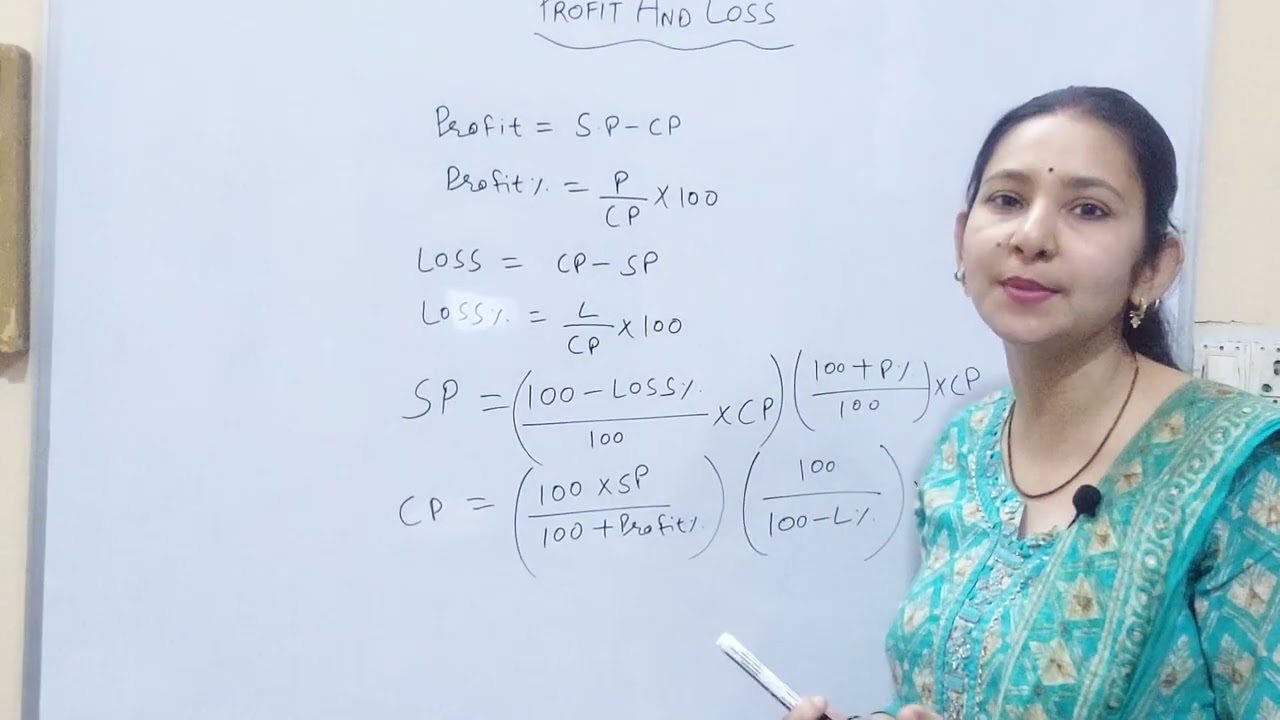 PROFIT AND LOSS
Profit = S.P - CP
Profit% = P/CP × 100
LOSS = CP - SP
LOSS% = L/CP × 100
SP = (100 - LOSS%/100 × CP) (100 + P%/100) × CP
CP = (100 × SP/100 + Profit%) (100/100 - L%)